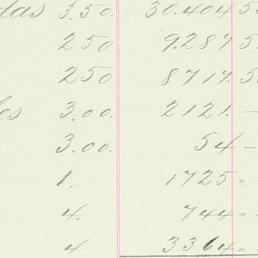 das 3.50. 30.404 5
250 9.287 5
250 8717. 5
es 3.00. 2121. —
3.00. 54 —
1. 1725 „
4. 744 „
4 3364 „